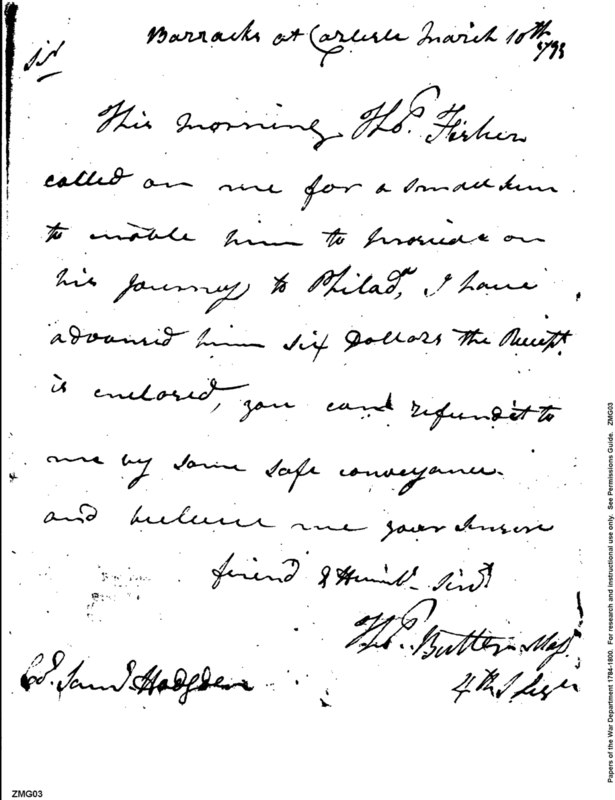 Barracks at Carlisle March 10th 1793
Sir
This morning Tho.s Fisher
called on me for a small sum
to enable him to proceed on
his journey to Philad.a, I have
advanced him six Dollars the Receipt
is enclosed, you can refund it to
me by some safe conveyance.
and believe me your sincere
friend & Humble Serv.t
Tho.s Butler Maj.r
4th S Legn
Col. Sam.l Hodgden
Papers of the War Department 1784-1800. For research and instructional use only. See Permissions Guide. ZMG03
ZMG03